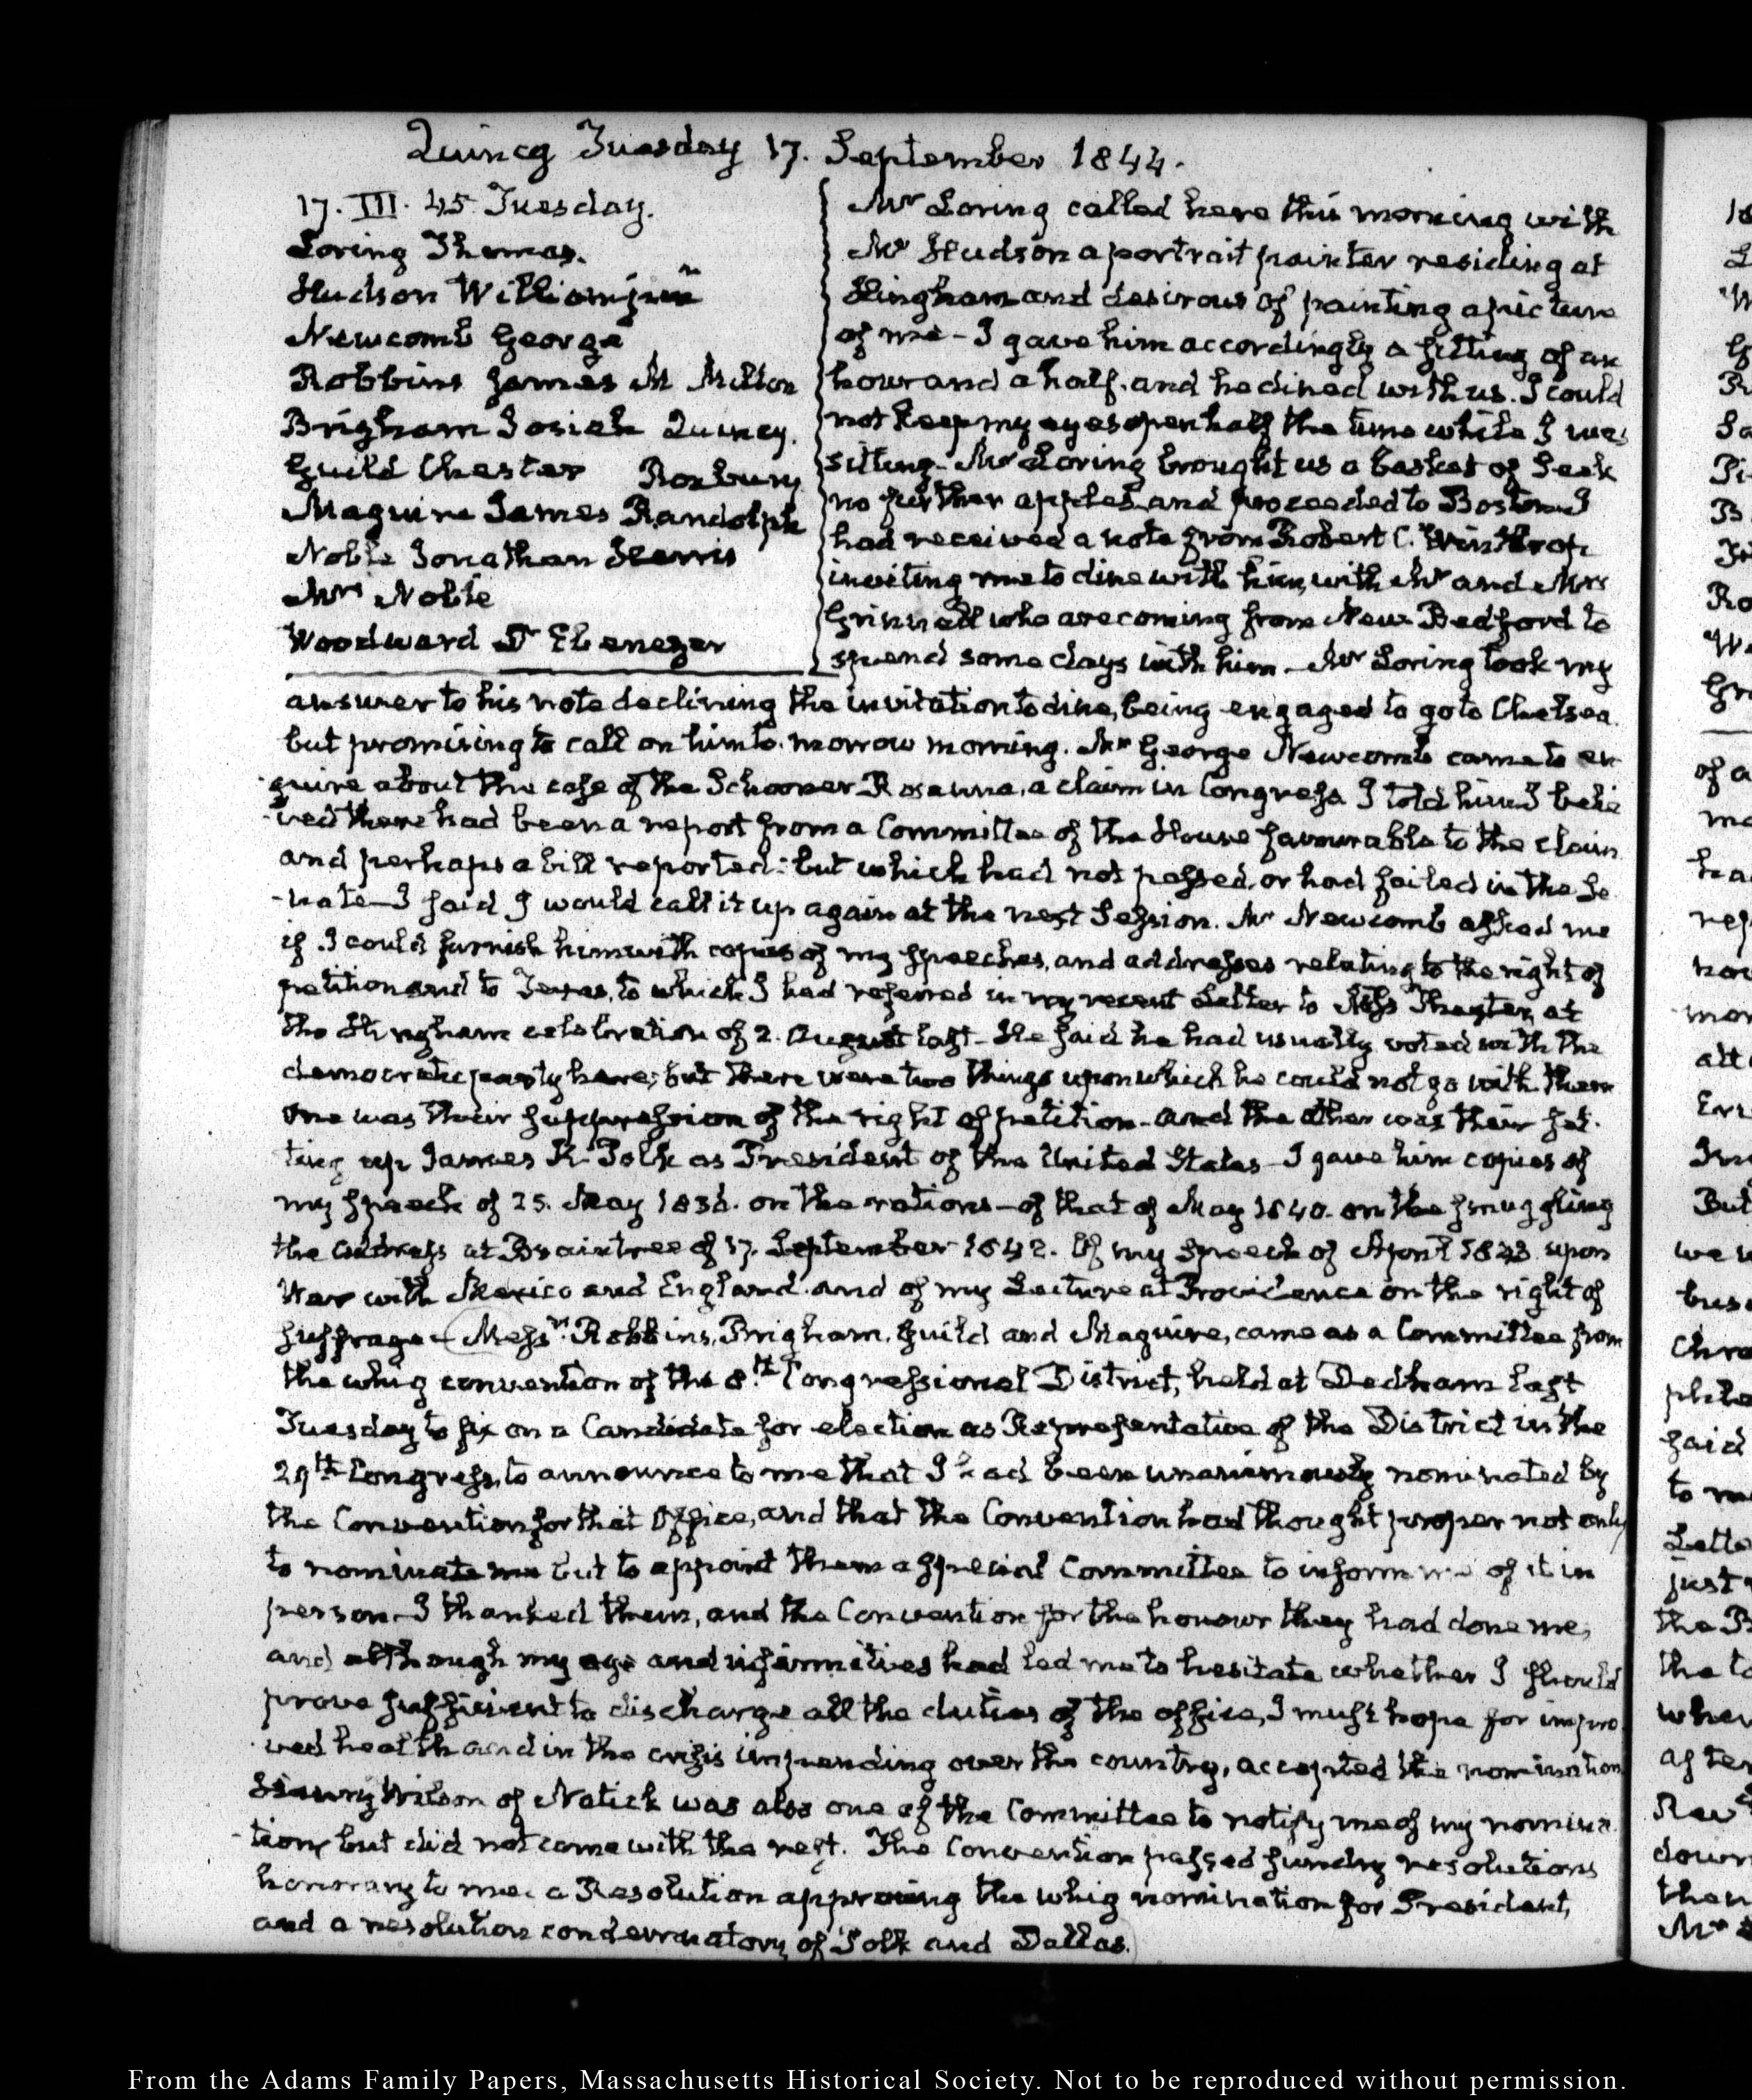 Quincy Tuesday 17. September 1844.
17. III. 45 Tuesday.
Loring Thomas.
Hudson William junr
Newcomb George
Robbins James M Milton
Brigham Josiah Quincy.
Guild Chester Roxbury
Maguire James Randolph
Noble Jonathan Harris
Mrs Noble
Woodward Dr Ebenezer
Mr Loring called here this morning with
Mr Hudson a portrait painter residing at
Hingham and desirous of painting a picture
of me - I gave him accordingly a sitting of an
hour and a half. and he dined with us. I could
not keep my eyes open half the time while I was
sitting- Mr Loring brought us a basket of Seek
no further apples and proceeded to Boston I
had received a note from Robert C. Winthrop
inviting me to dine with him, with Mr and Mrs
Grinnell who are coming from New Bedford to
spend some days with him - Mr Loring took my
answer to his note declining the invitation to dine, being engaged to go to Chelsea
but promising to call on him to-morrow morning. Mr George Newcomb came to en
quire about the case of the Schooner Rosanna, a claim in Congress I told him I belie
-ved there had been a report from a Committee of the House favourable to the claim
and perhaps a bill reported: but which had not passed, or had failed in the Se
-nate- I said I would call it up again at the next Session. Mr Newcomb asked me
if I could furnish him with copies of my speeches, and addresses relating to the right of
petition and to Texas, to which I had referred in my recent Letter to Miss Thaxter, at
the Hingham celebration of 2. August last- He said he had usually voted with the
democratic party here; but there were two things upon which he could not go with them
One was their suppression of the right of petition- and the other was their set-
ting up James K Polk as President of the United States- I gave him copies of
my speech of 25. May 1836. on the rations- of that of May 1840. on the smuggling
the address at Braintree of 17. September 1842. Of my Speech of April 1842 upon
War with Mexico and England. and of my Lecture at Providence on the right of
suffrage- Messrs. Robbins, Brigham. Guild and Maguire, came as a Committee from
the whig convention of the 8th. Congressional District, held at Dedham last
Tuesday to fix on a Candidate for election as Representative of the District in the
29th Congress, to announce to me that I had been unanimously nominated by
the Convention for that Office, and that the Convention had thought proper not only
to nominate me but to appoint them a special Committee to inform me of it in
person- I thanked them, and the Convention for the honour they had done me,
and although my age and infirmities had led me to hesitate whether I should
prove sufficient to discharge all the duties of the office, I must hope for impro
-ved health and in the crisis impending over the country, accepted the nomination
Henry Wilson of Natick was also one of the Committee to notify me of my nomina
-tion, but did not come with the rest. The Convention passed sundry resolutions
honorary to me. a Resolution approving the whig nomination for President,
and a resolution condemnatory of Polk and Dallas.
From the Adams Family Papers, Massachusetts Historical Society. Not to be reproduced without permission.